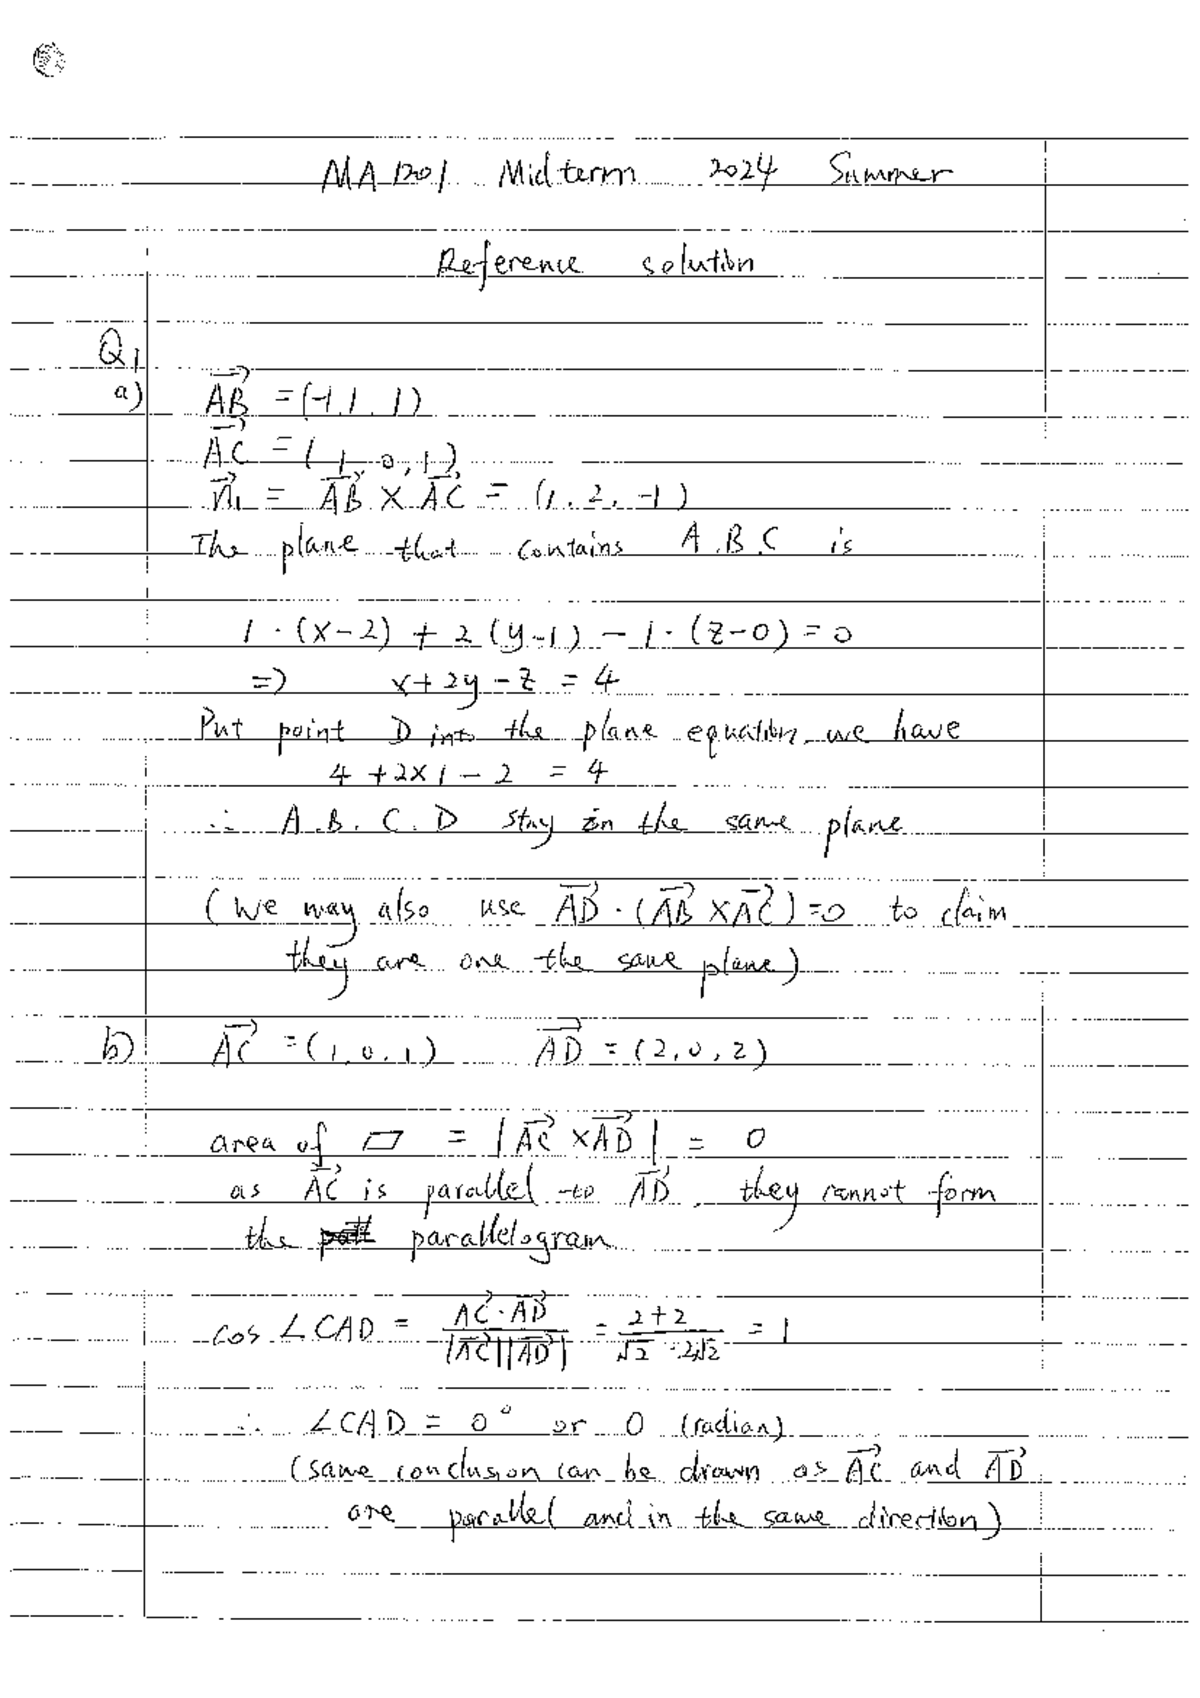 MA1201 Midterm 2024 Summer
Reference solution
Q1
a) AB⃗ = (-1, 1, 1)
AC⃗ = (1, 0, 1)
n⃗₁ = AB⃗ × AC⃗ = (1, 2, -1)
The plane that contains A.B.C is
1·(x-2) + 2(y-1) - 1·(z-0) = 0
=> x+2y-z = 4
Put point D into the plane equation, we have
4 + 2×1 - 2 = 4
∴ A.B.C.D stay in the same plane
(we may also use AD⃗·(AB⃗ × AC⃗) = 0 to claim
they are one the same plane)
b) AC⃗ = (1, 0, 1) AD⃗ = (2, 0, 2)
area of ▱ = |AC⃗ × AD⃗| = 0
as AC⃗ is parallel to AD⃗, they cannot form
the parallelogram
cos ∠CAD = AC⃗·AD⃗ / |AC⃗||AD⃗| = 2+2 / √2·2√2 = 1
∴ ∠CAD = 0° or 0 (radian)
(same conclusion can be drawn as AC⃗ and AD⃗
are parallel and in the same direction)